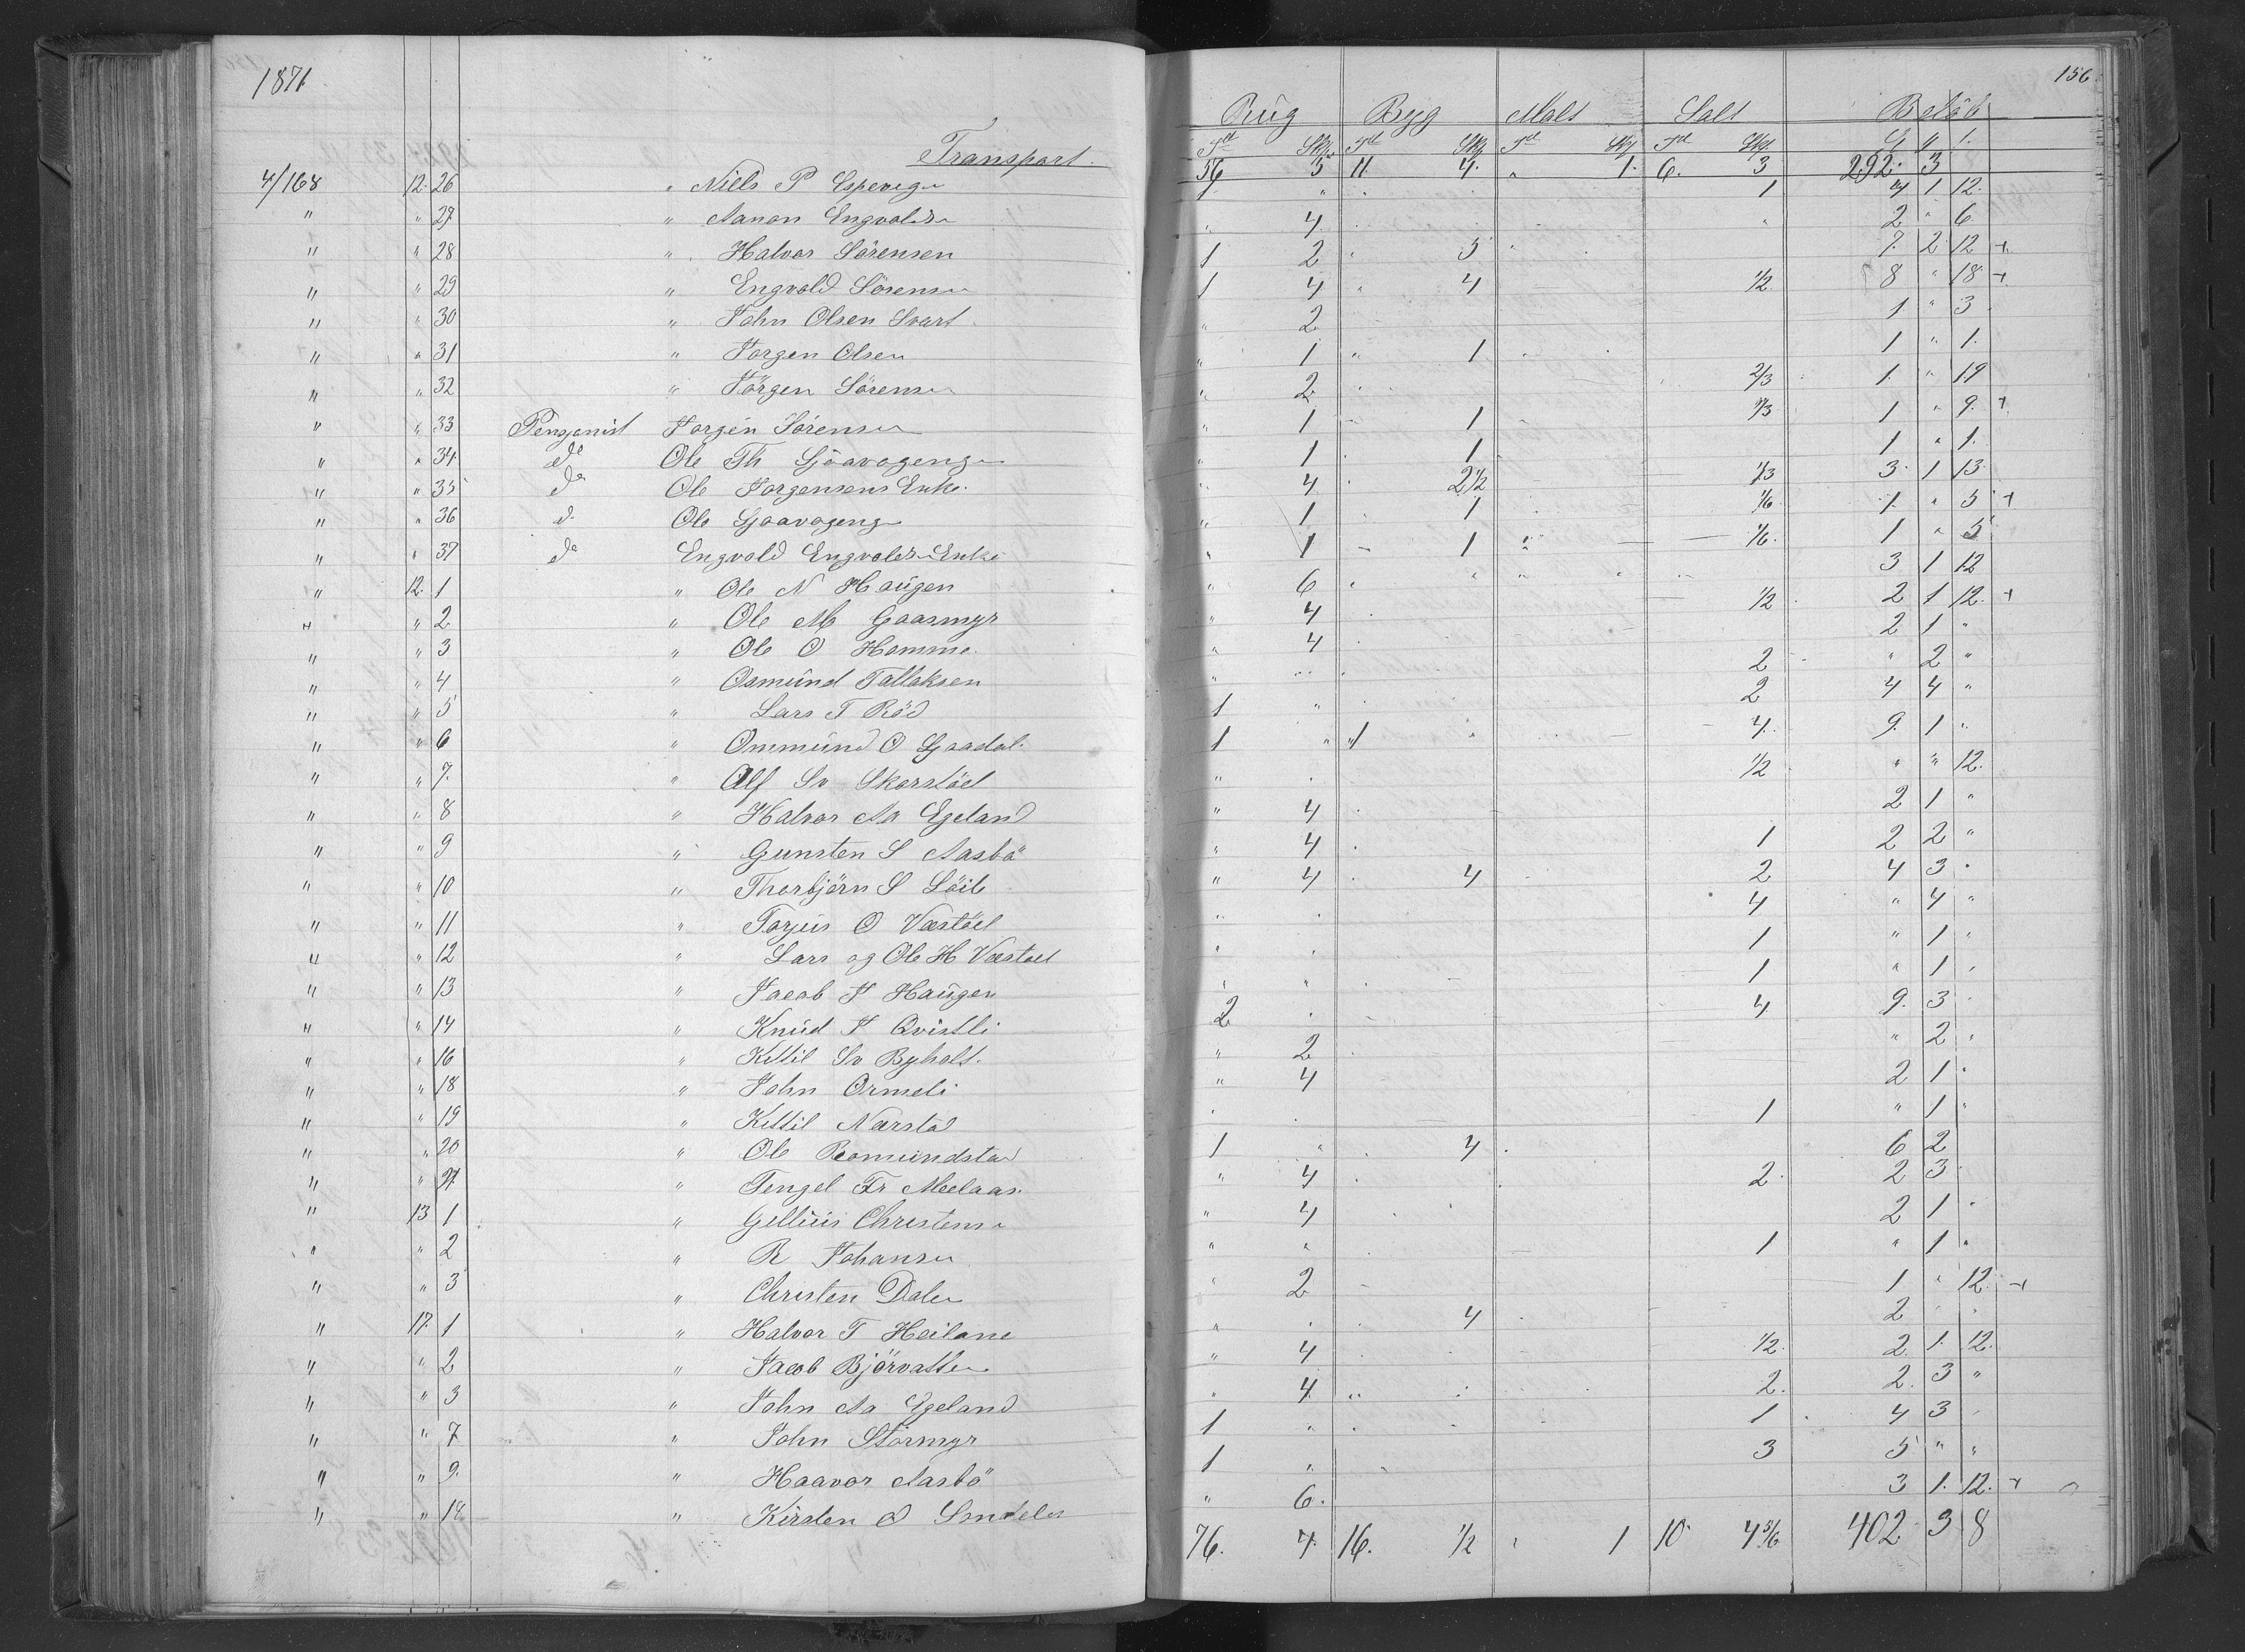 1871
156
Rug Byg Malt Salt Beløb
Td Skp Td Skp Td Skp Td Skp
Transport 56 5 11. 4. " 1. 6. 3 292. 3
4/168 12. 26 " Niels P Espeveg 1 " 1 4 1 12.
" " 27 " Aanon Engvolds " 4. " 2 " 6.
" " 28 " Halvor Sörensen 1 2 " 5 " 7. 2 12 +
" " 29 " Engvold Sörens 1 4 " 4 1/2 8 " 18 +
" " 30 " John Olsen Svart " 2 1 " 3
" " 31 " Jorgen Olsen " 1 " 1 1 " 1.
" " 32 " Jörgen Sörens " 2 2/3 1. " 19
" " 33 Pensjonist Jorgen Sörens " 1 1 1/3 1 " 9. +
" " 34 do Ole Th Gjöavogeng " 1 1 1 " 1.
" " 35 do Ole Jorgensens Enke. " 4. 2 1/2 1/3 3 1 13
" " 36 d Ole Gjoavogeng " 1 1 1/6 1. " 5 +
" " 37 do Engvold Engvolds Enke " 1 1 1/6. 1 " 5
" 12. 1 " Ole N Haugen " 6 3 1 12
" " 2 " Ole M Gaasmyr " 4 1/2 2 1 12. +
" " 3 " Ole O Homme " 4 2 1 "
" " 4 " Osmund Tallaksen " 2 " 2 "
" " 5 " Lars T Röd 1 " 2 4 4 "
" " 6 " Ommund O Gaadal. 1 " 1 4. 9. 1 "
" " 7. " Alf Sv Skorstöel " 1/2 " " 12.
" " 8 " Halvor Aa Egeland " 4 2 1 "
" " 9 " Gunsten S Aasbö " 4 1 2 2 "
" " 10 " Thorbjörn S Löite " 4 4 2 4 3
" " 11 " Torjus O Væstöel 4 " 4 "
" " 12 " Lars og Ole H Væstöel 1 " 1
" " 13 " Jacob J Haugen 1 " 1
" " 14 " Knud J Qvistli 2 4 9. 3
" " 16 " Kittil Sv Byholt. " 2 " 2
" " 18 " John Ormeli " 4 2 1
" " 19 " Kittil Nærstad 1 " 1 "
" " 20 " Ole Romundstad 1 " 4 6 2
" " 21 " Tengel Fr Meelaas. " 4 2. 2 3
" 13 1 " Gellius Christens " 4 2 1
" " 2 " R Johansen " " 1 " 1 "
" " 3 " Christen Dalen " 2 1 " 12. +
" 17. 1 " Halvor T Heilane " 4 2
" " 2 " Jacob Björvatten " 4 1/2 2. 1. 12.
" " 3 " John Aa Egeland " 4 2. 2. 3 "
" " 7 " John Stormyr 1 " 1 4 3
" " 9. " Haavor Aasbö 1 " 3 5 " "
" " 18 " Kirsten O " 6. 3 1. 12. +
76. 7. 16. 1/2 " 1 10 4 5/6 402. 3 8